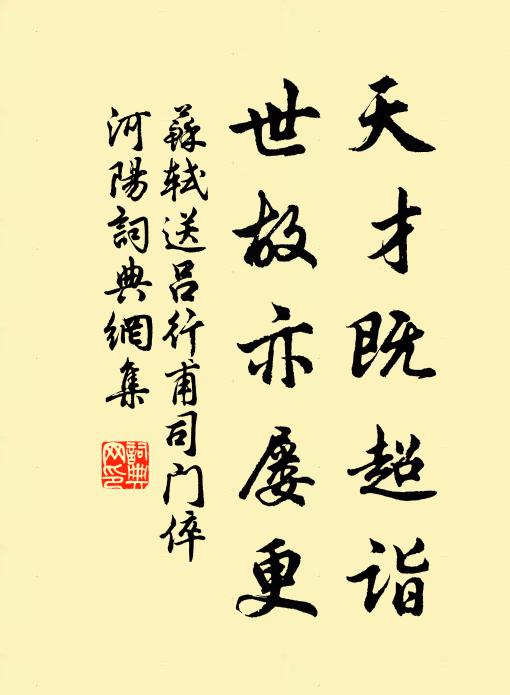 天才既超詣
世故亦屡更
蘇軾送吕行甫司门倅
河陽詞典網集
詞典
网印